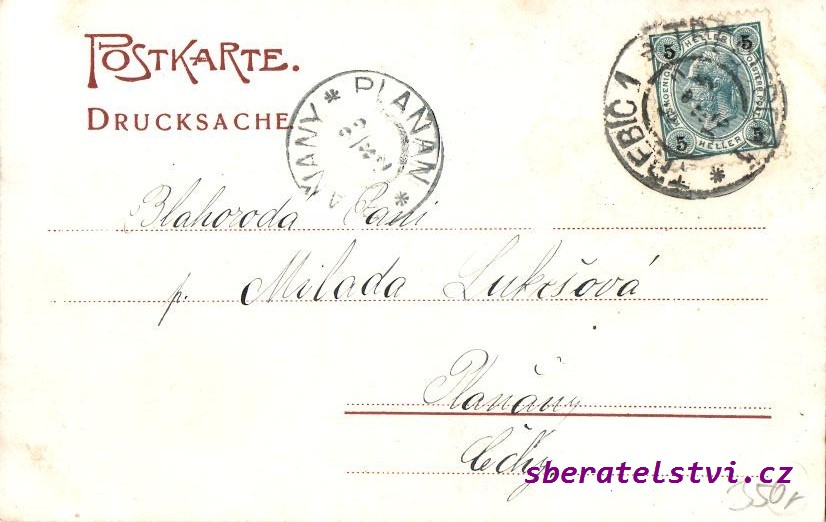 POSTKARTE.
DRUCKSACHE
PLANAN * * PLAŇANY
TŘEBÍČ 1 *
5 HELLER 5
5 HELLER 5
Blahorodá Paní
p. Milada Lukešová
Planány
Čechy
sberatelstvi.cz
350,-